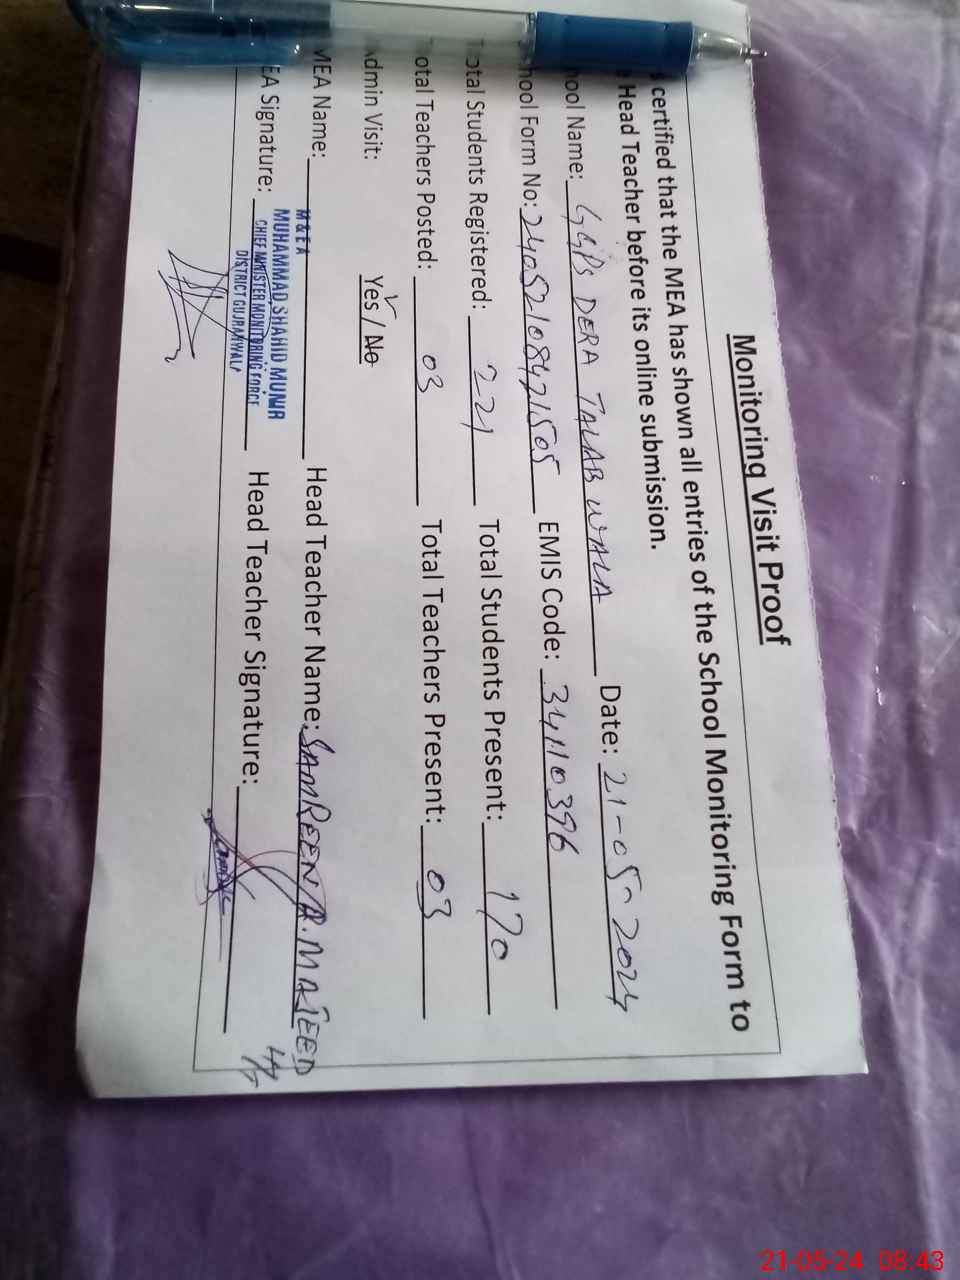 Monitoring Visit Proof
certified that the MEA has shown all entries of the School Monitoring Form to
Head Teacher before its online submission.
ool Name: GGPS DERA TALAB WALA Date: 21-05-2024
hool Form No: 24052108421505 EMIS Code: 34110396
otal Students Registered: 221 Total Students Present: 170
otal Teachers Posted: 03 Total Teachers Present: 03
dmin Visit: Yes / No
MEA Name: M&EA Head Teacher Name: SAMREEN A.MAJEED
EA Signature: MUHAMMAD SHAHID MUNIR Head Teacher Signature:
CHIEF MINISTER MONITORING FORCE
DISTRICT GUJRANWALA
21-05-24 08:43